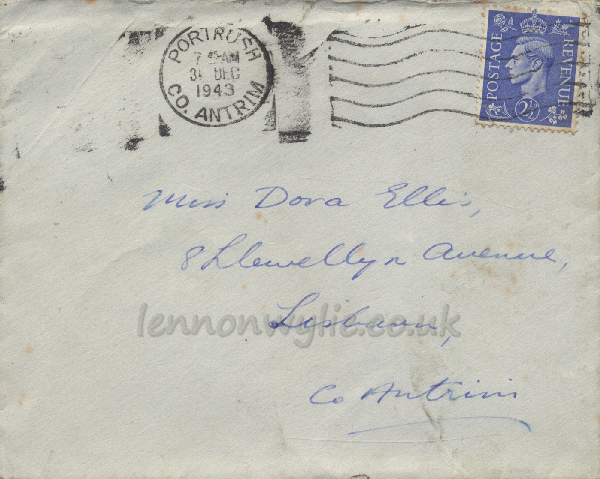 PORTRUSH
7 15 AM
31 DEC
1943
CO. ANTRIM
POSTAGE
REVENUE
2½
Miss Dora Ellis,
8 Llewellyn Avenue,
Lisburn,
Co Antrim
lennonwylie.co.uk